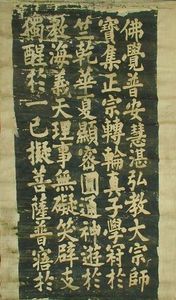 佛覺普安慧湛弘教大宗師
寶集正宗轉輪真子學冠於
竺乾華夏顯密圓通神遊於
教海義天理事無礙笑辟支
獨醒於一己擬菩薩普濟於